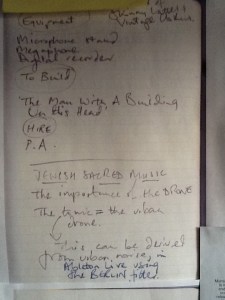 Equipment
Microphone stand
Megaphone
Digital recorder
To Build
The Man With A Building
On His Head
HIRE
P.A.
JEWISH SACRED MUSIC
The importance of the DRONE
The tonic = the urban
drone.
This can be derived
from urban noise, in
Ableton Live using
the BERLIN